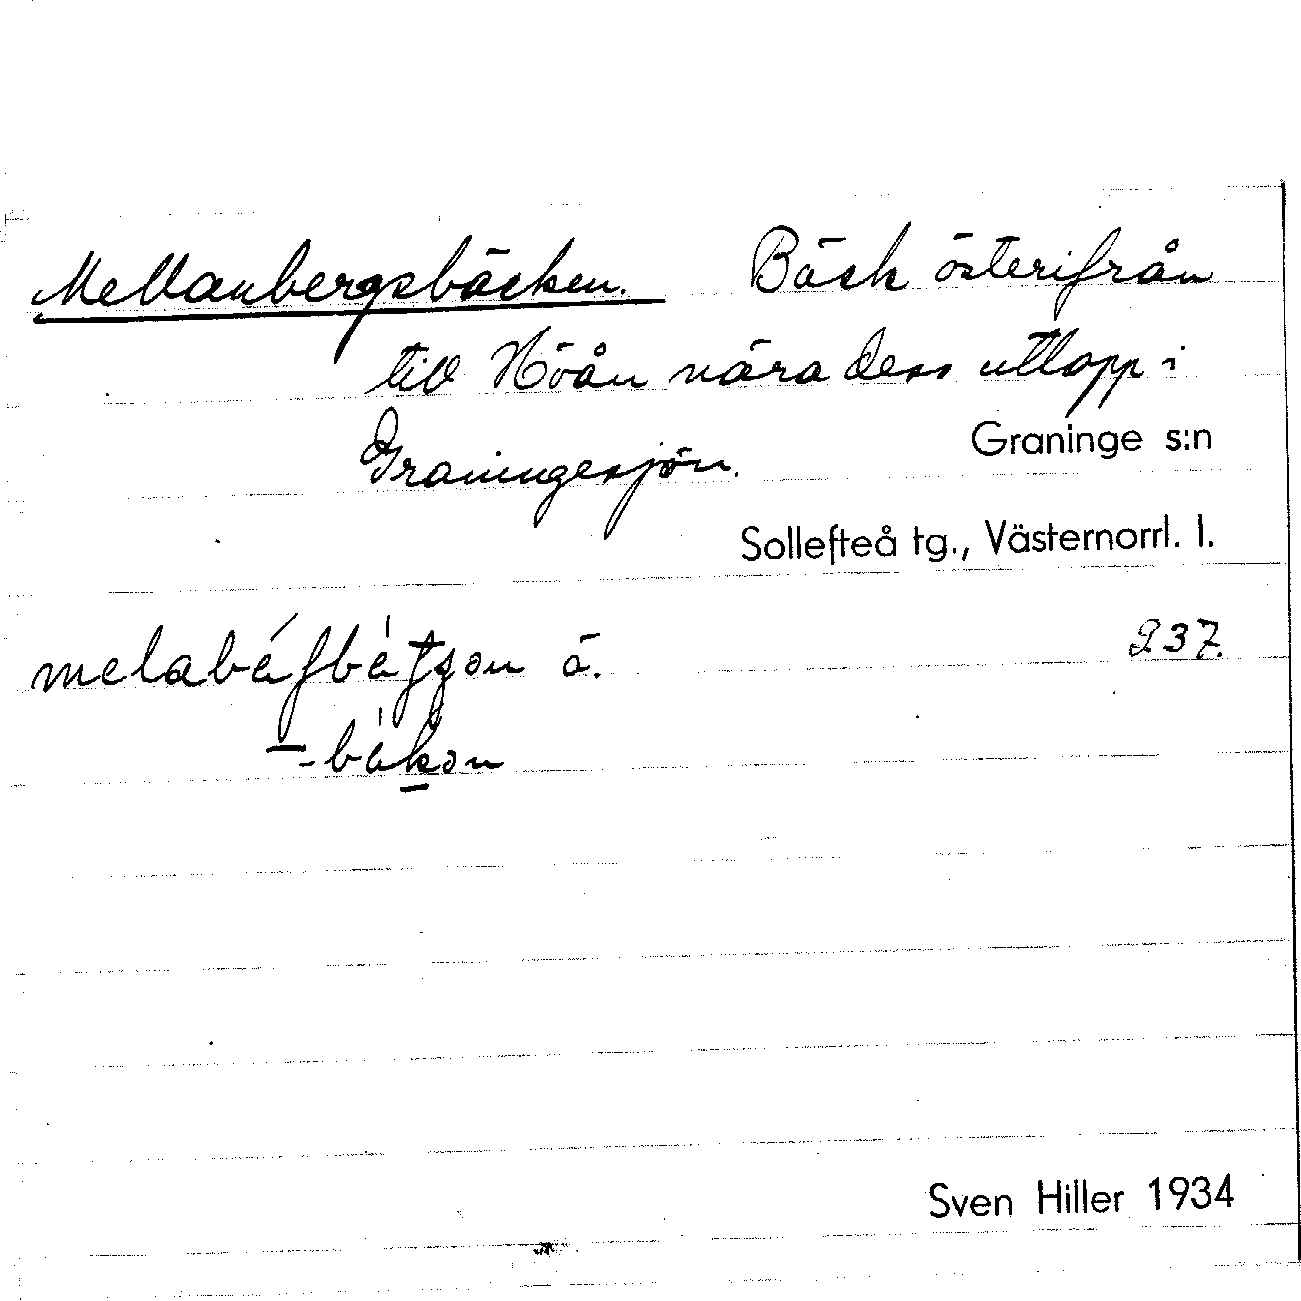 Mellanbergsbäcken. Bäck österifrån
till Höån nära dess utlopp i
Graningesjön. Graninge s:n
Sollefteå tg., Västernorrl. l.
237.
Sven Hiller 1934